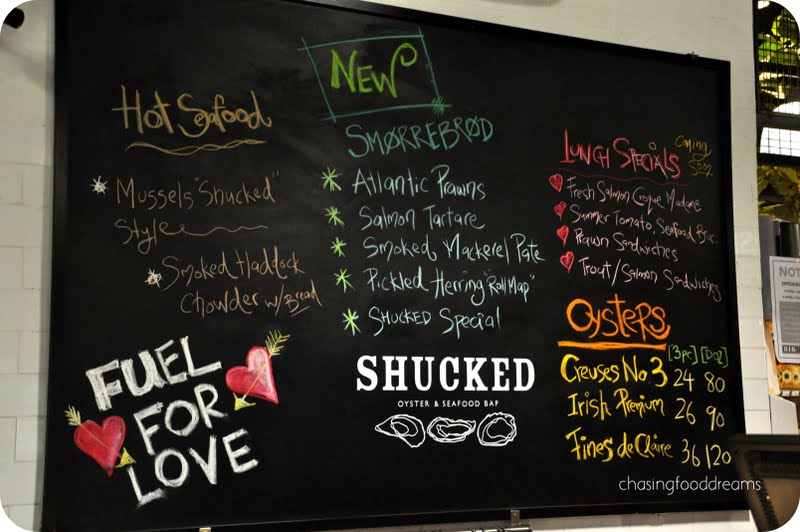 Hot Seafood
Mussels "Shucked"
Style
Smoked Haddock
Chowder w/ Bread
FUEL
FOR
LOVE
NEW
SMØRREBRØD
Atlantic Prawns
Salmon Tartare
Smoked Mackerel Pate
Pickled Herring "Roll Map"
SHUCKED Special
SHUCKED
OYSTER & SEAFOOD BAP
LUNCH SPECIALS
Coming
Soon
Fresh Salmon Croque Madame
Summer Tomato, Seafood
Prawn Sandwiches
Trout/Salmon Sandwiches
Oysters
[3pc] [Doz]
Creuses No. 3 24 80
Irish Premium 26 90
Fines de Claire 36 120
NOT
chasingfooddreams